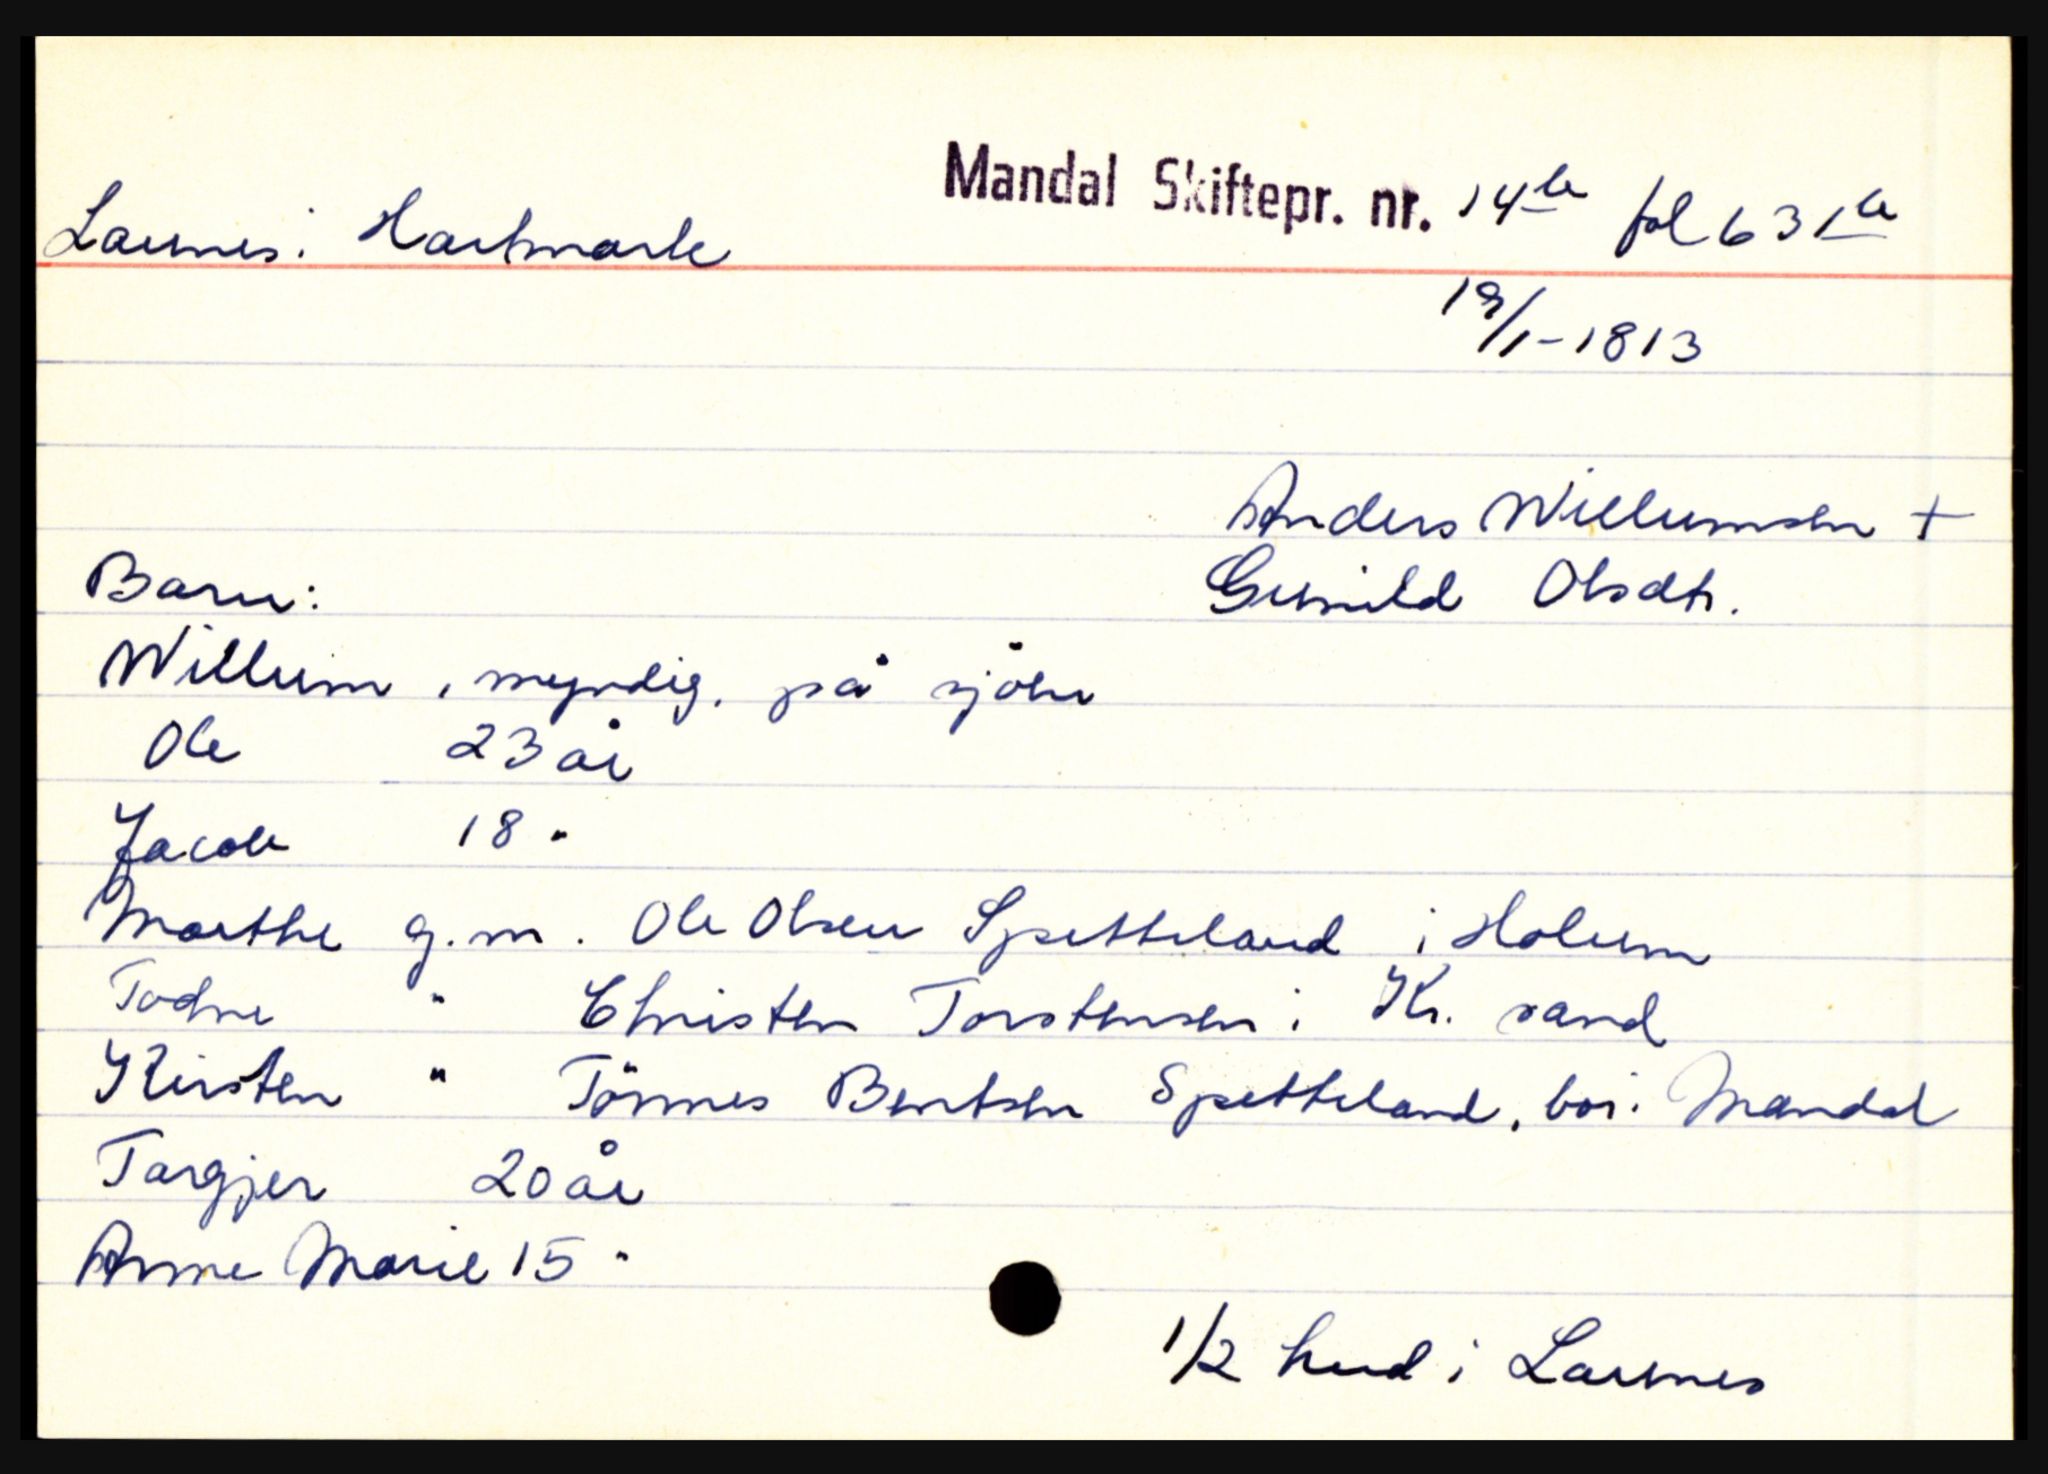 Mandal Skiftepr. nr. 14b fol 631b
Launes i Hartmark
19/1-1813
Anders Willumsen +
Barn:
Gunild Olsdtr.
Willum, myndig, på sjöen
Ole 23 år
Jacob 18 "
Marthe g.m. Ole Olsen Spetteland i Holum
Todne " Christen Torstensen i Kr. sand
Kirsten " Tönnes Bentsen Spetteland, bor i Mandal
Targjer 20 år
Anne Marie 15 "
1/2 hud i Launes